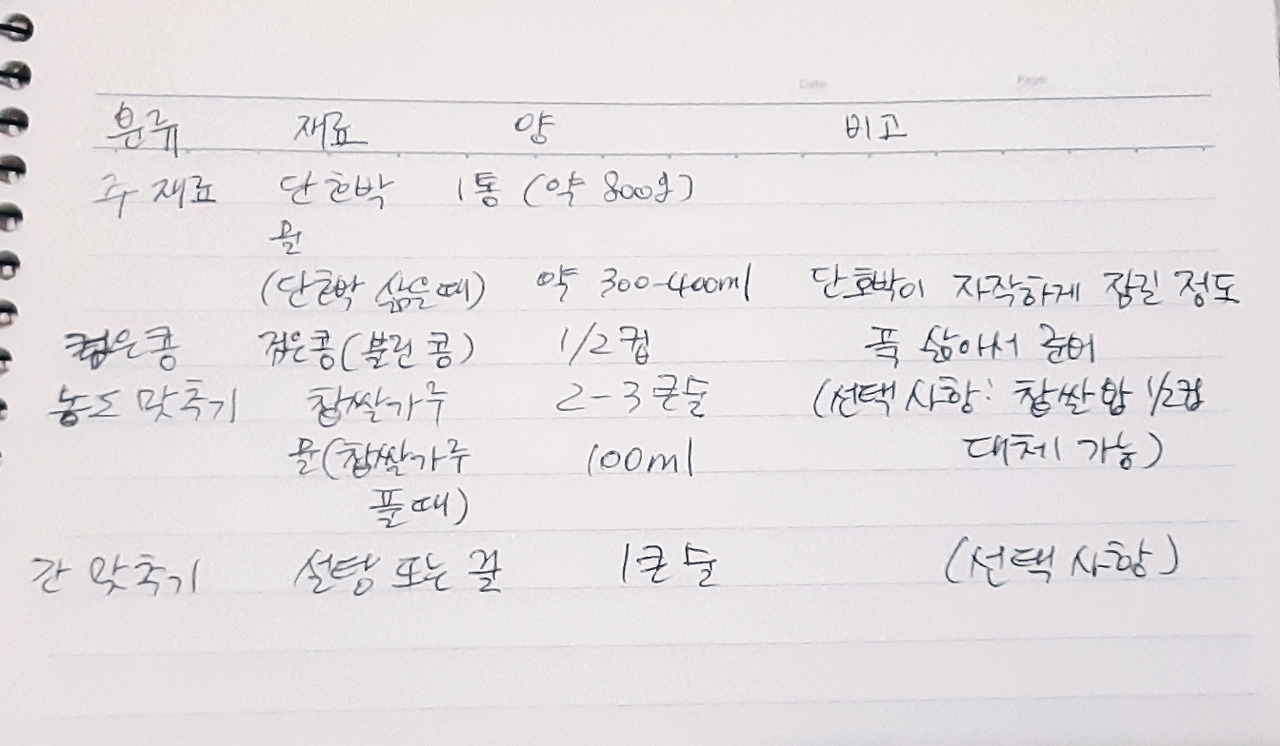 Date Page
분류 재료 양 비고
주 재료 단호박 1통 (약 800g)
물
(단호박 삶을때) 약 300-400ml 단호박이 자작하게 잠길 정도
검은콩 검은콩(불린 콩) 1/2컵 푹 삶아서 준비
농도 맞추기 찹쌀가루 2-3큰술 (선택 사항: 찹쌀밥 1/2컵
물(찹쌀가루 100ml 대체 가능)
풀때)
간 맞추기 설탕 또는 꿀 1큰술 (선택 사항)